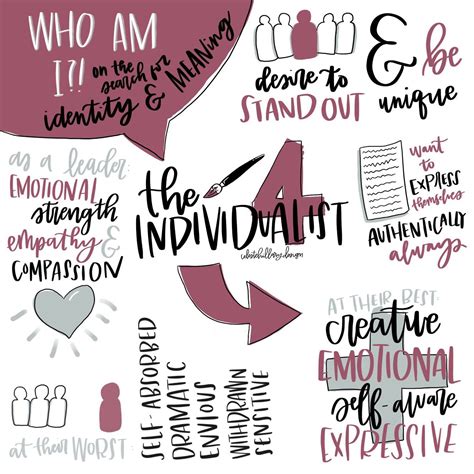 WHO AM
I?!
on the
search for
identity & MEANING
desire to
STAND OUT
& be
unique
as a leader:
EMOTIONAL
strength
empathy &
COMPASSION
the 4
INDIVIDUALIST
want
to
EXPRESS
themselves
AUTHENTICALLY
always
AT THEIR BEST:
creative
EMOTIONAL
self-aware
EXPRESSIVE
at their WORST:
SELF-ABSORBED
DRAMATIC
ENVIOUS
WITHDRAWN
SENSITIVE